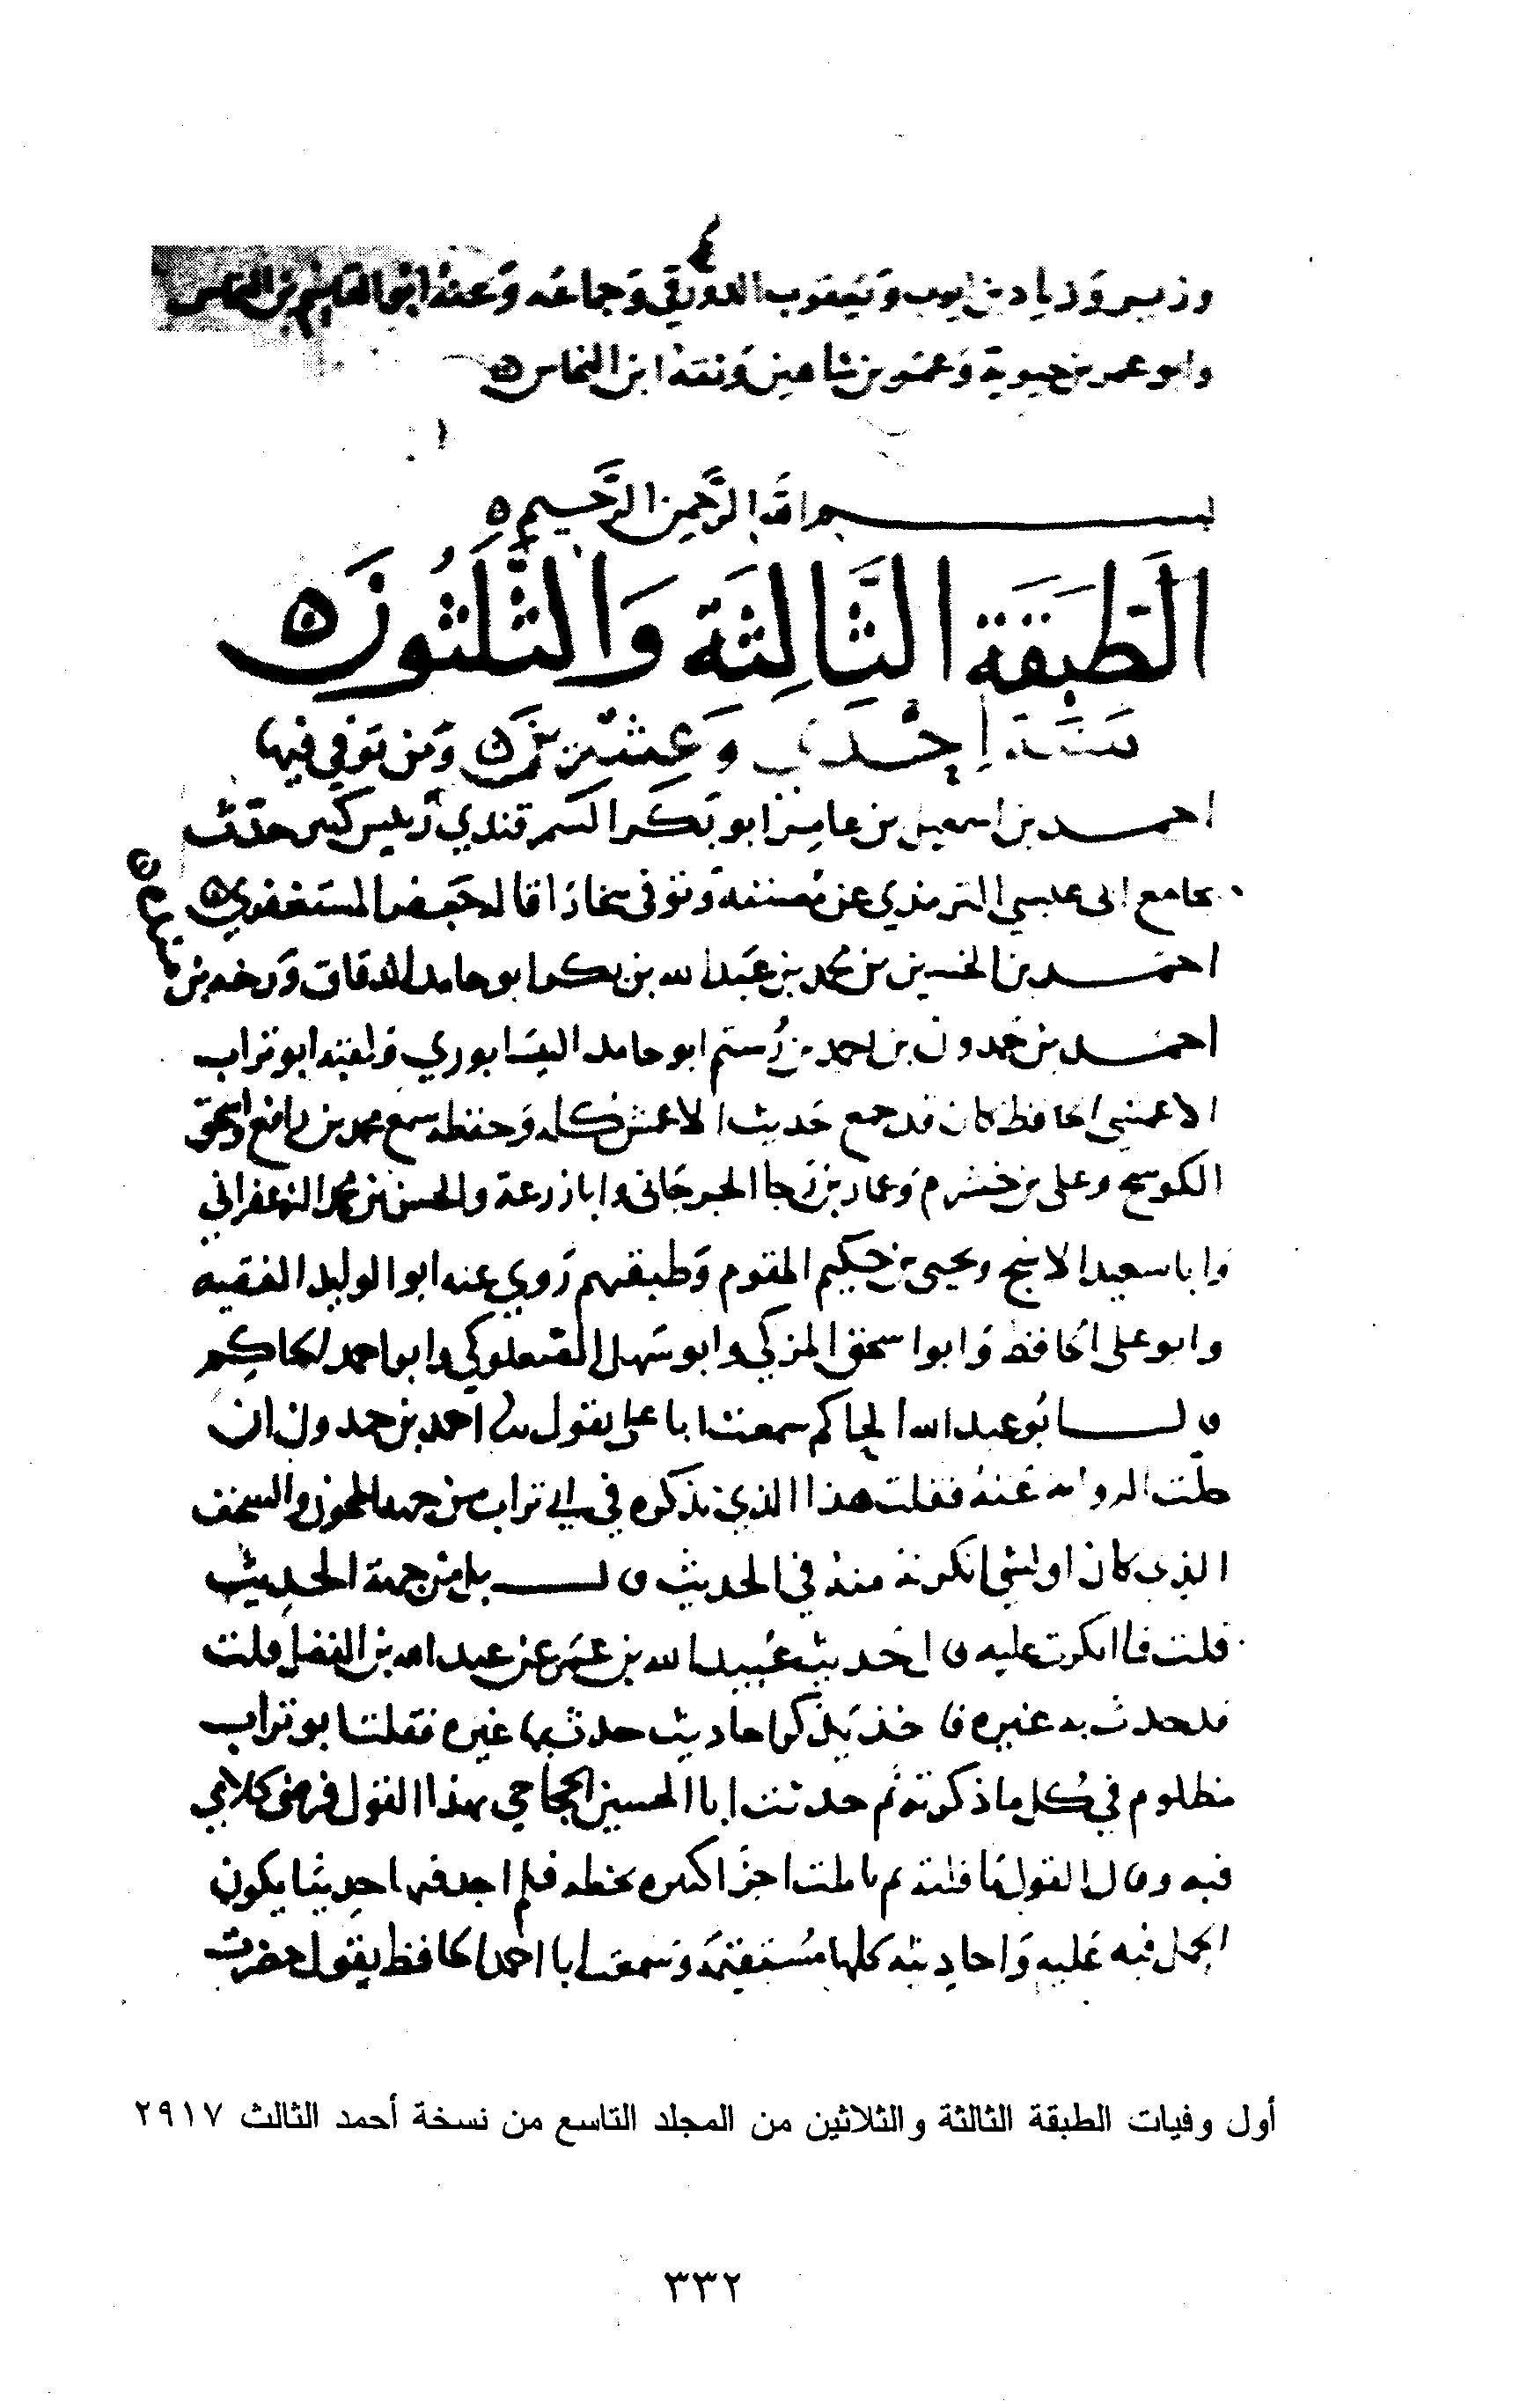 وزنبر وزياد بن ايوب ويعقوب الدورقي وجماعه وعنه ابن النخاس
وابو عمر بن حيوية وعمر بن شاهين وثقه ابن النخاس
بسم الله الرحمن الرحيم
الطبقة الثالثة والثلثون
سنة احدى وعشرين ومن توفي فيها
احمد بن اسمعيل بن عامر ابو بكر السمرقندي رئيس كبير حدث
بجامع ابى عيسي الترمذي عن مصنفه وتوفى ببخارا قاله جعفر المستغفري
احمد بن الحسين بن محمد بن عبد الله بن بكر ابو حامد الدقاق ورخه بن
منده
احمد بن حمدون بن احمد بن رستم ابو حامد النيسابوري ولقبه ابو تراب
الاعمشي الحافظ كان قد جمع حديث الاعمش كله وحفظه سمع محمد بن رافع واسحق
الكوسج وعلى بن خشرم وعمار بن رجا الجرجانى وابا زرعة والحسن بن محمد الزعفراني
وابا سعيد الاشج ويحيى بن حكيم المقوم وطبقتهم روي عنه ابو الوليد الفقيه
وابو على الحافظ وابو اسحق المزكي وابو سهل الصعلوكي وابو احمد الحاكم
قال ابو عبد الله الحاكم سمعت ابا على يقول احمد بن حمدون ان
حلت الرواية عنه فقلت هذا الذي تذكره في ابي تراب من جهة المجون والسخف
الذي كان او لشي انكرته منه في الحديث قال بل من جهة الحديث
قلت فما انكرت عليه قال حديث عبيد الله بن عمر عن عبد الله بن الفضل قلت
قد حدث به غيره فاخذ يذكر احاديث حدث بها غيره فقلت ابو تراب
مظلوم في كل ما ذكرته ثم حدثت ابا الحسين الحجاجي بهذا القول فرضى كلامي
فيه وقال القول ما قلته ثم تاملت اجزا كثيره بخطه فلم اجد فيها حديثا يكون
الحمل فيه عليه واحاديثه كلها مستقيمة وسمعت ابا احمد الحافظ يقول حضرت
أول وفيات الطبقة الثالثة والثلاثين من المجلد التاسع من نسخة أحمد الثالث ٢٩١٧
٣٣٢